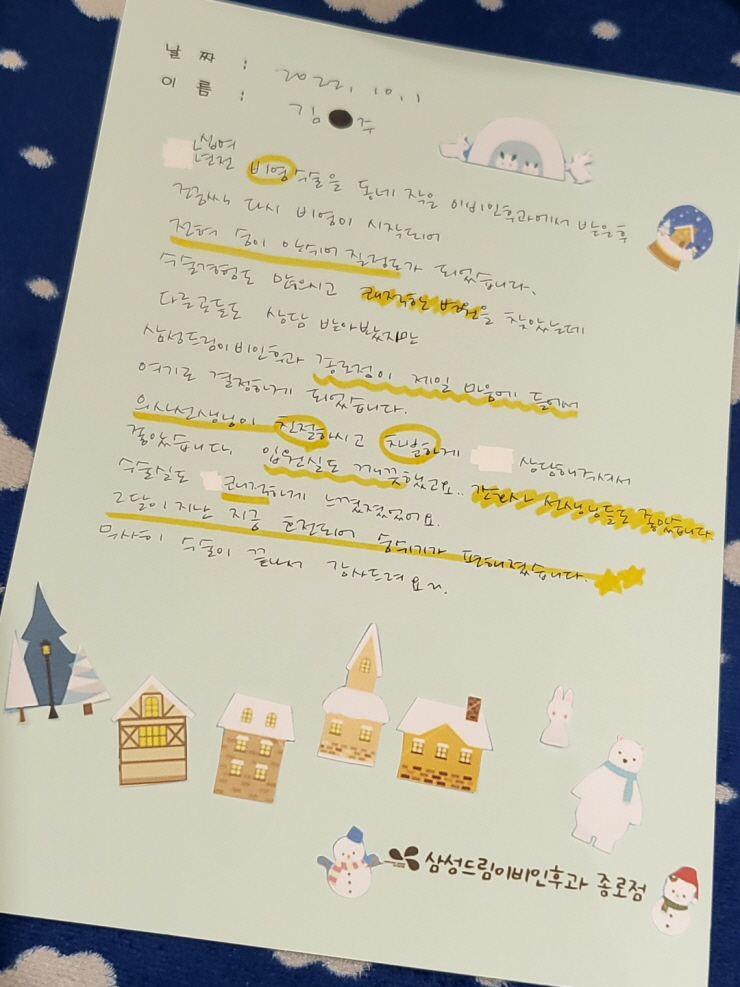 날 짜 : 2022. 10. 1
이 름 : 김 주
십여
년전 비염수술을 동네 작은 이비인후과에서 받은후
다시 비염이 시작되어
전혀 숨이 안쉬어 질정도가 되었습니다.
수술경험도 많으시고 쾌적하는 병원을 찾았는데
다른곳들도 상담 받아봤지만
삼성드림이비인후과 종로점이 제일 마음에 들어서
여기로 결정하게 되었습니다.
의사선생님이 친절하시고 차분하게 상담해주셔서
좋았습니다. 입원실도 깨끗했고요.. 간호사 선생님들도 좋았습니다
수술실도 쾌적하게 느껴졌었어요.
그달이 지난 지금 호전되어 숨쉬기가 편해졌습니다.
무사히 수술이 끝나서 감사드려요~.
삼성드림이비인후과 종로점